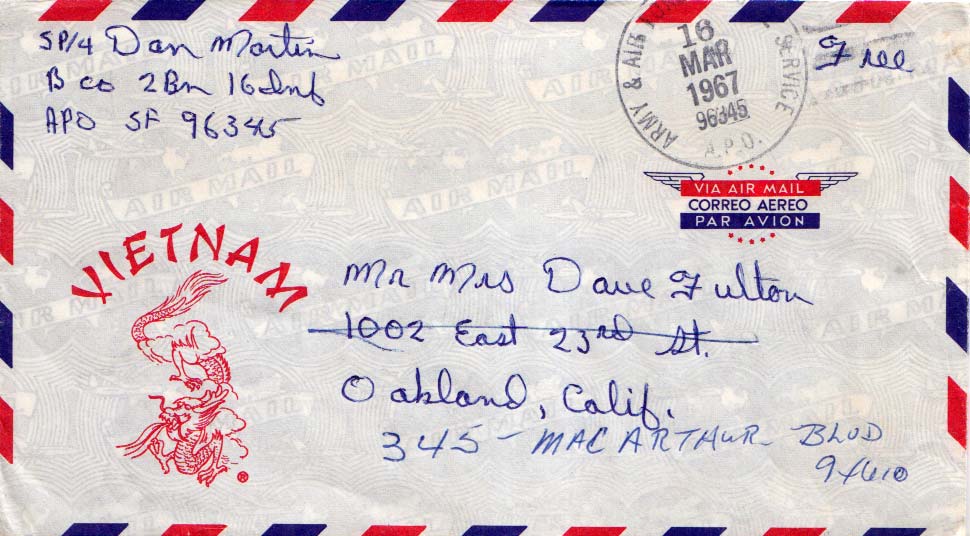 SP/4 Dan Martin
B co 2Bn 16 Inf
APO SF 96345
ARMY & AIR SERVICE
16
MAR
1967
96345
A.P.O.
Free
VIA AIR MAIL
CORREO AEREO
PAR AVION
VIETNAM
Mr Mrs Dave Fulton
1002 East 23rd St.
Oakland, Calif.
345 - MAC ARTHUR BLVD
94610
®
AIR MAIL